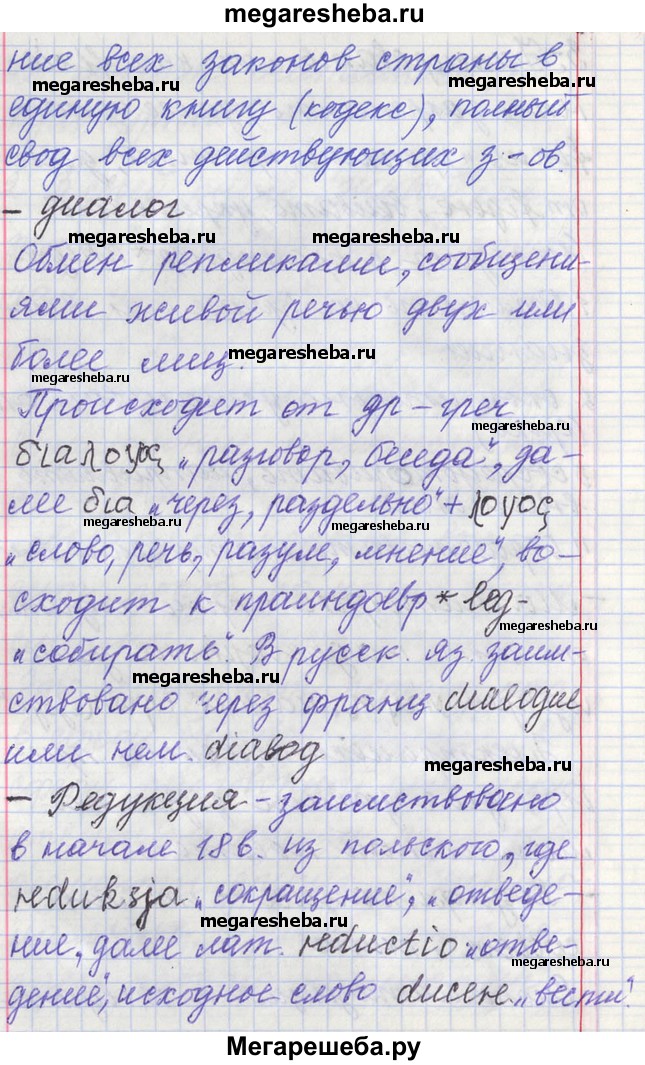 megaresheba.ru
ние всех законов страны в
megaresheba.ru megaresheba.ru
единую книгу (кодекс), полный
свод всех действующих з-ов.
– диалог
megaresheba.ru megaresheba.ru
Обмен репликами, сообщени-
ями живой речью двух или
более лиц.
megaresheba.ru
megaresheba.ru
Происходит от др-греч
megaresheba.ru
διαλογος „разговор, беседа", да-
лее δια „через, раздельно" + λογος
megaresheba.ru megaresheba.ru
„слово, речь, разум, мнение", во-
сходит к праиндоевр * leg-
megaresheba.ru
„собирать". В русск. яз. заим-
megaresheba.ru
ствовано через франц dialogue
или нем. diaвog
megaresheba.ru
– Редукция – заимствовано
в начале 18 в. из польского, где
reduksja „сокращение", „отведе-
megaresheba.ru
ние, далее лат. reductio „отве-
megaresheba.ru
дение", исходное слово ducere „вести".
Мегарешеба.ру